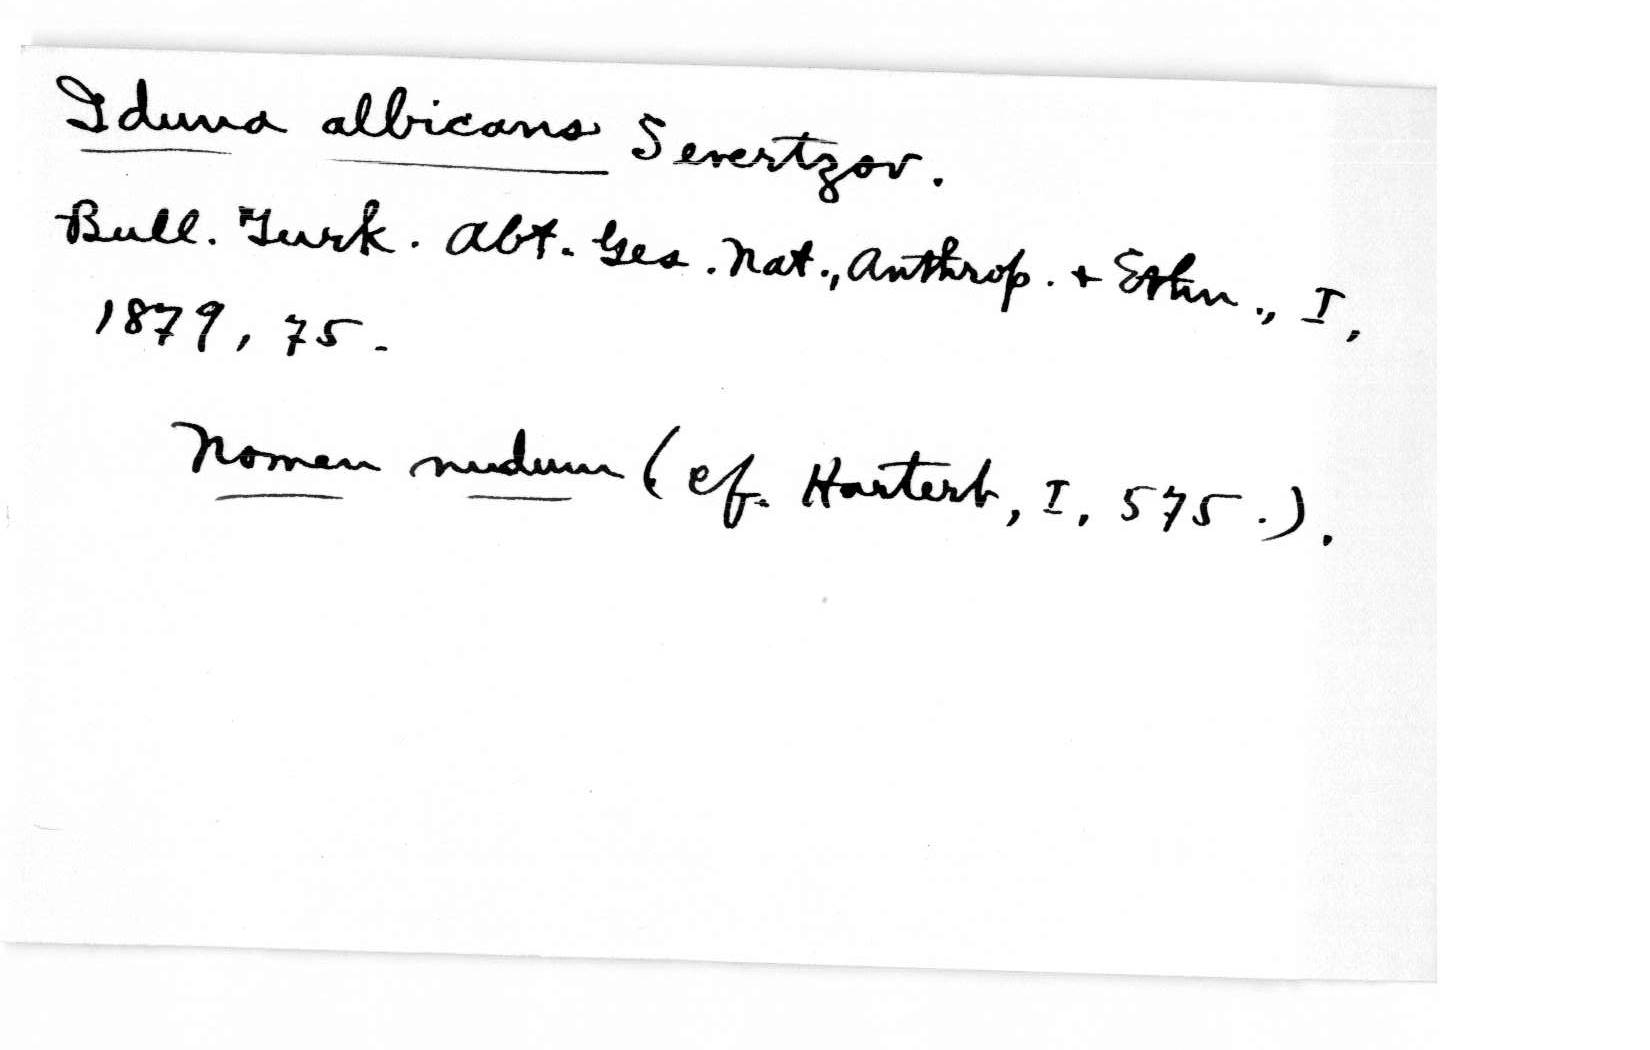 Iduna albicans Severtzov.
Bull. Turk. Abt. Ges. Nat., Anthrop. + Ethn., I,
1879, 75.
Nomen nudum (cf. Hartert, I, 575.).